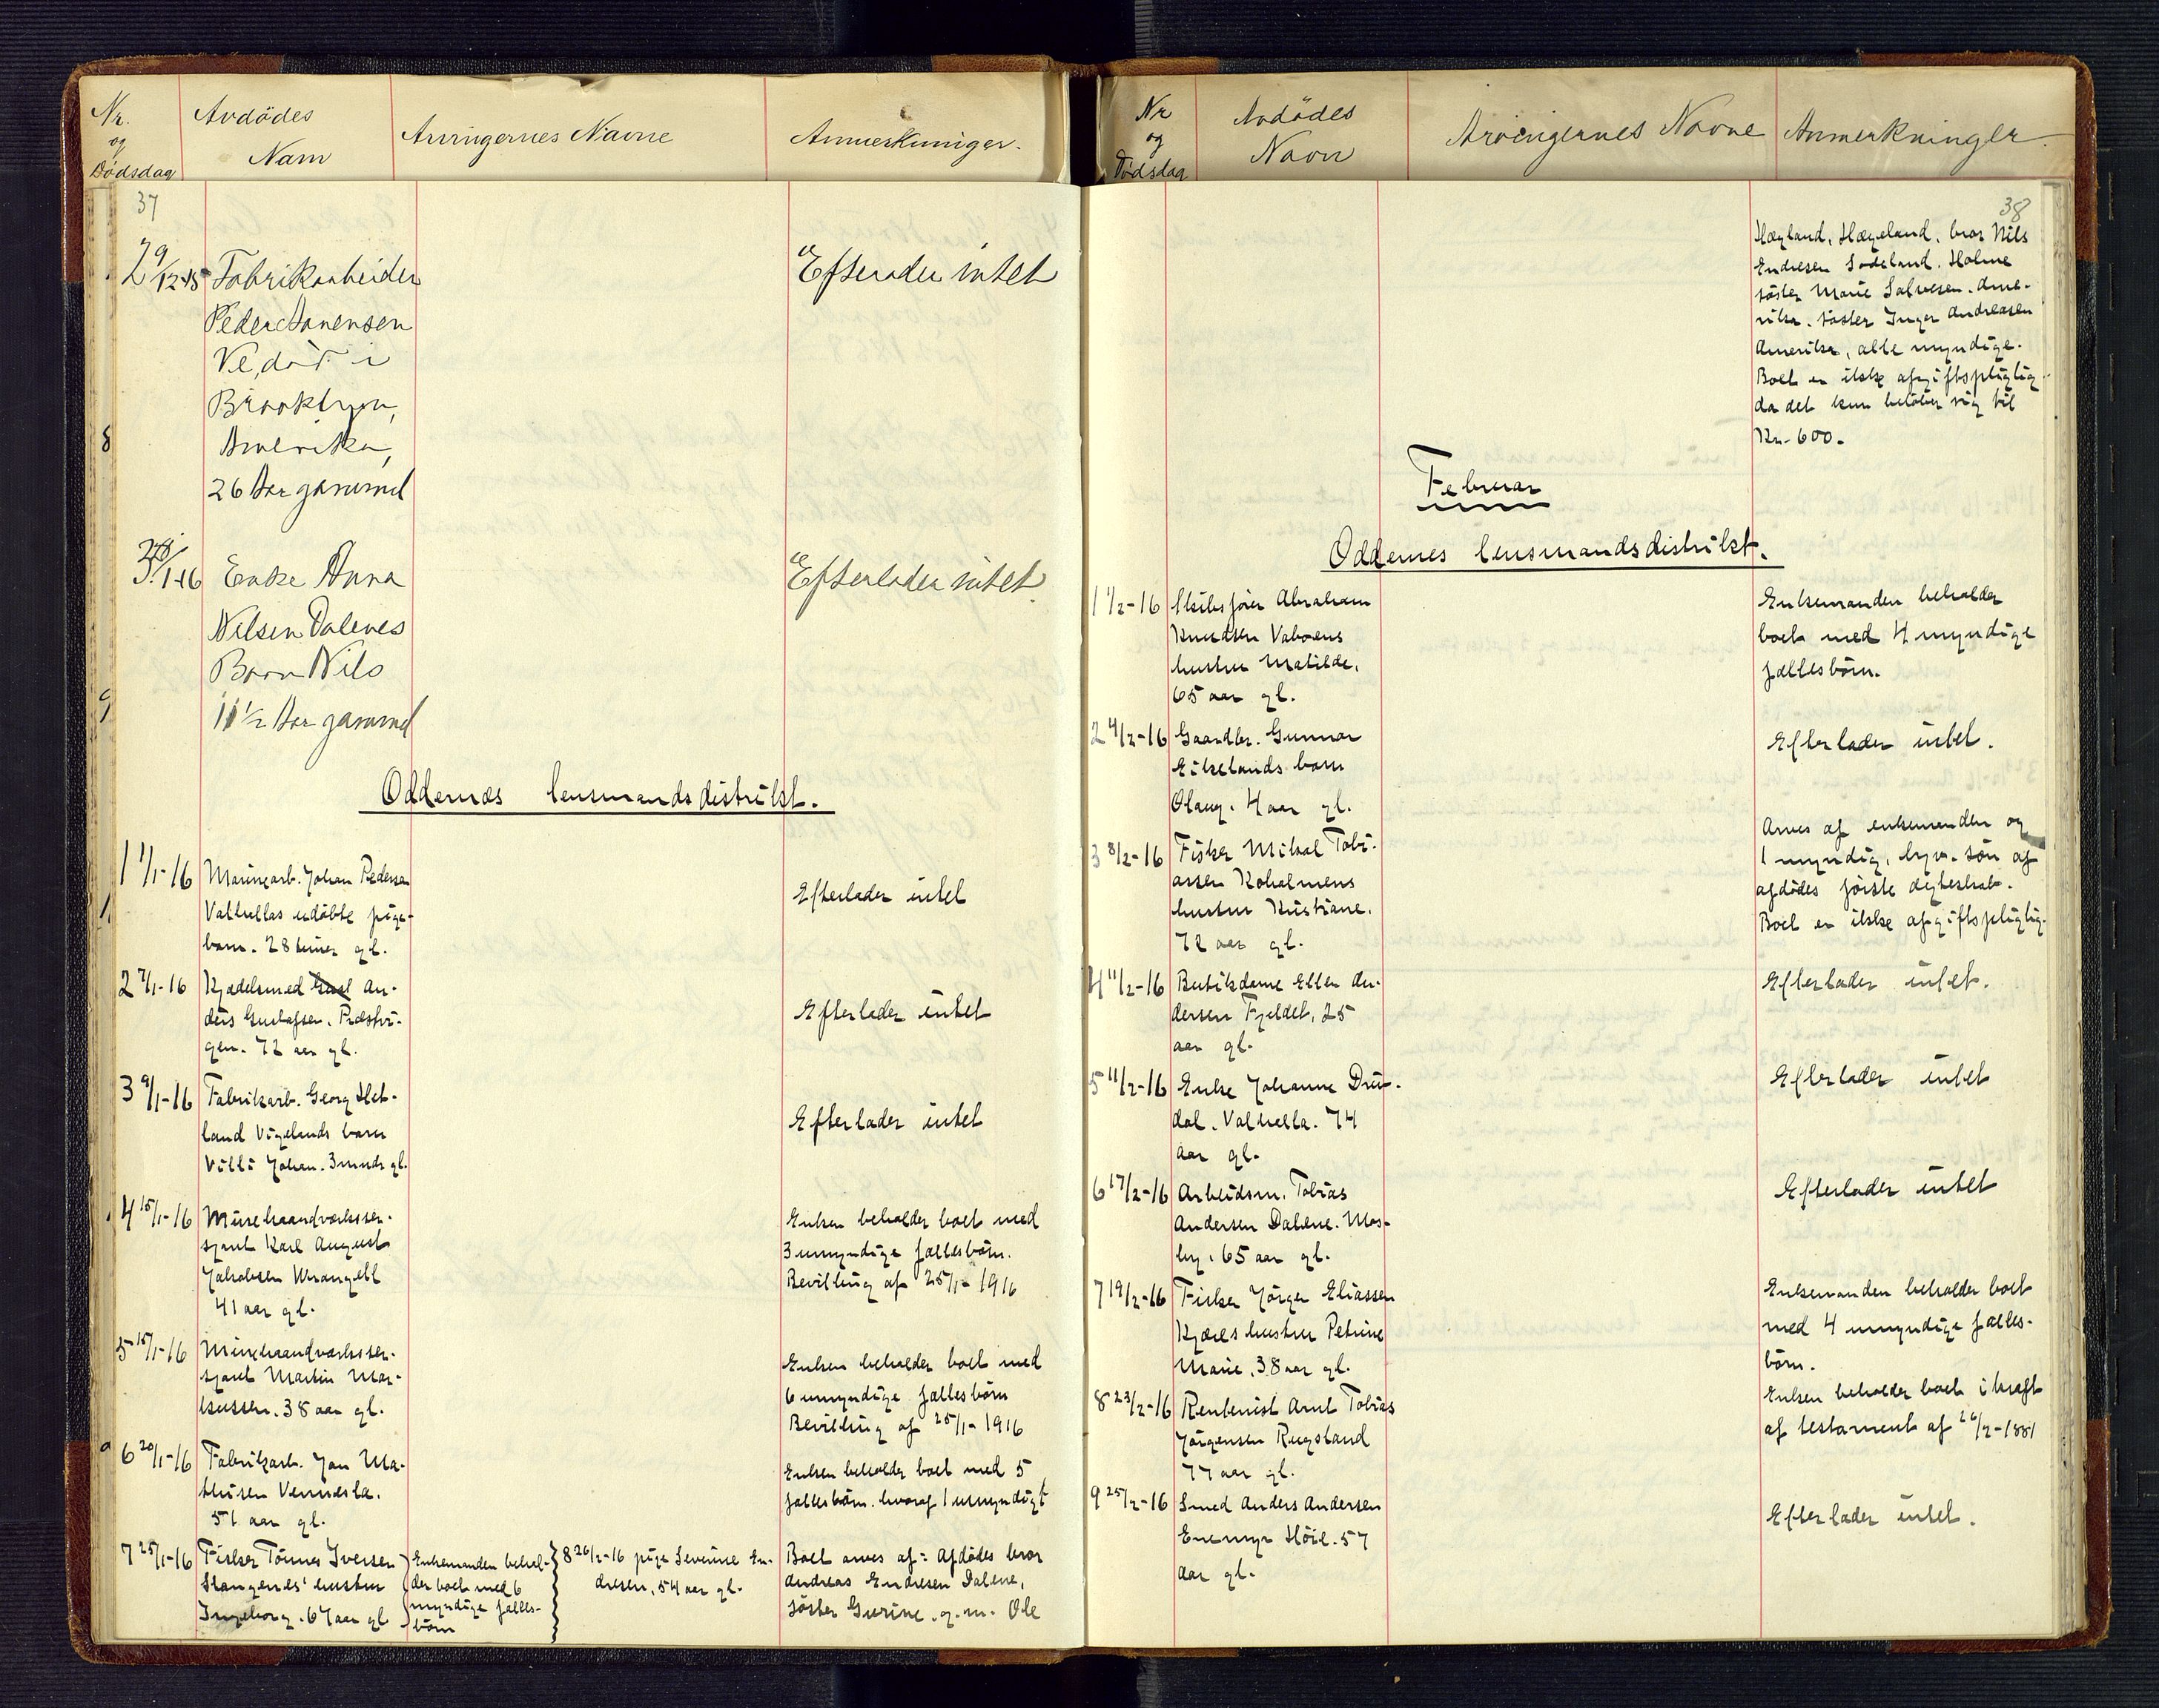 Nr.
og
Dödsdag
Avdödes
Navn
Arvingernes Navne
Anmerkninger.
37
2 9/12-15 Fabrikarbeider
Peder Aanensen
Ve, död i
Brooklyn,
Amerika,
26 Aar gammel
Efterlader intet
3. /1-16 Enke Anna
Nilsen Dalenes
Barn Nils
11 1/2 Aar gammel
Efterlader intet
Oddernes lensmandsdistrikt.
1 1/1-16 Marinearb. Johan Pedersen
Valhellas udöbte pige-
barn. 28 timer gl.
Efterlader intet
2 7/1-16 Kjedelsmed An-
ders Gustafsen. Præstvi-
gen. 72 aar gl.
Efterlader intet
3 9/1-16 Fabrikarb. Georg Het-
land Vigelands barn
Villi Johan. 3 mndr gl.
Efterlader intet
4 15/1-16 Minehaandværksser-
sjant Karl August
Jakobsen Wrangell
41 aar gl.
Enken beholder boet med
3 umyndige fællesbörn.
Bevilling af 25/1-1916
5 15/1-16 Minehaandværksser-
sjant Martin Mar-
kussen. 38 aar gl.
Enken beholder boet med
6 umyndige fællesbörn
Bevilling af 25/1-1916
6 20/1-16 Fabrikarb. Jan Ma-
thisen Vennesla.
51 aar gl.
Enken beholder boet med 5
fællesbörn. hvoraf 1 umyndigt
7 25/1-16 Fisker Tönnes Iversen
Stangenes' hustru
Ingeborg. 67 aar gl
Enkemanden behol-
der boet med 6
myndige fælles-
börn
8 26/1-16 pige Severine En-
dresen, 54 aar gl.
Boet arves af: Afdödes bror
Andreas Endresen Dalene,
söster Gurine. g. m. Ole
Nr
og
Dödsdag
Avdödes
Navn
Arvingernes Navne
Anmerkninger.
38
Hægland, Hægeland, bror Nils
Endresen Sodeland. Holme
söster Marie Salvesen. Ame-
rika. söster Inger Andreasen
Amerika, alle myndige.
Boet er ikke afgiftspligtig
da det kun belöber sig til
Kr. 600.
Februar
Oddernes lensmandsdistrikt.
1 1/2-16 Skibsförer Abraham
Knudsen Vaboens
hustru Matilde.
65 aar gl.
Enkemanden beholder
boet med 4 myndige
fællesbörn.
2 4/2-16 Gaardbr. Gunnar
Eikelands barn
Olaug. 4 aar gl.
Efterlader intet.
3 8/2-16 Fisker Mikal Tobi-
assen Koholmens
hustru Kristiane.
72 aar gl.
Arves af enkemanden og
1 myndig, sön af
afdödes förste egteskab.
Boet er ikke afgiftspligtig.
4 11/2-16 Butikdame Ellen An-
dersen Fjeldet, 25
aar gl.
Efterlader intet.
5 11/2-16 Enke Johanne
dal. Valhella. 74
aar gl.
Efterlader intet
6 17/2-16 Arbeidsm. Tobias
Andersen Dalene. Mos-
by. 65 aar gl.
Efterlader intet
7 19/2-16 Fisker Jörgen Eliassen
Kjæres hustru Petrine
Marie. 38 aar gl.
Enkemanden beholder boet
med 4 umyndige fælles-
börn.
8 23/2-16 Rentenist Arnt Tobias
Jörgensen Rugsland
77 aar gl.
Enken beholder boet i kraft
af testament af 26/2-1881
9 25/2-16 Smed Anders Andersen
Enemyr Höie. 57
aar gl.
Efterlader intet.